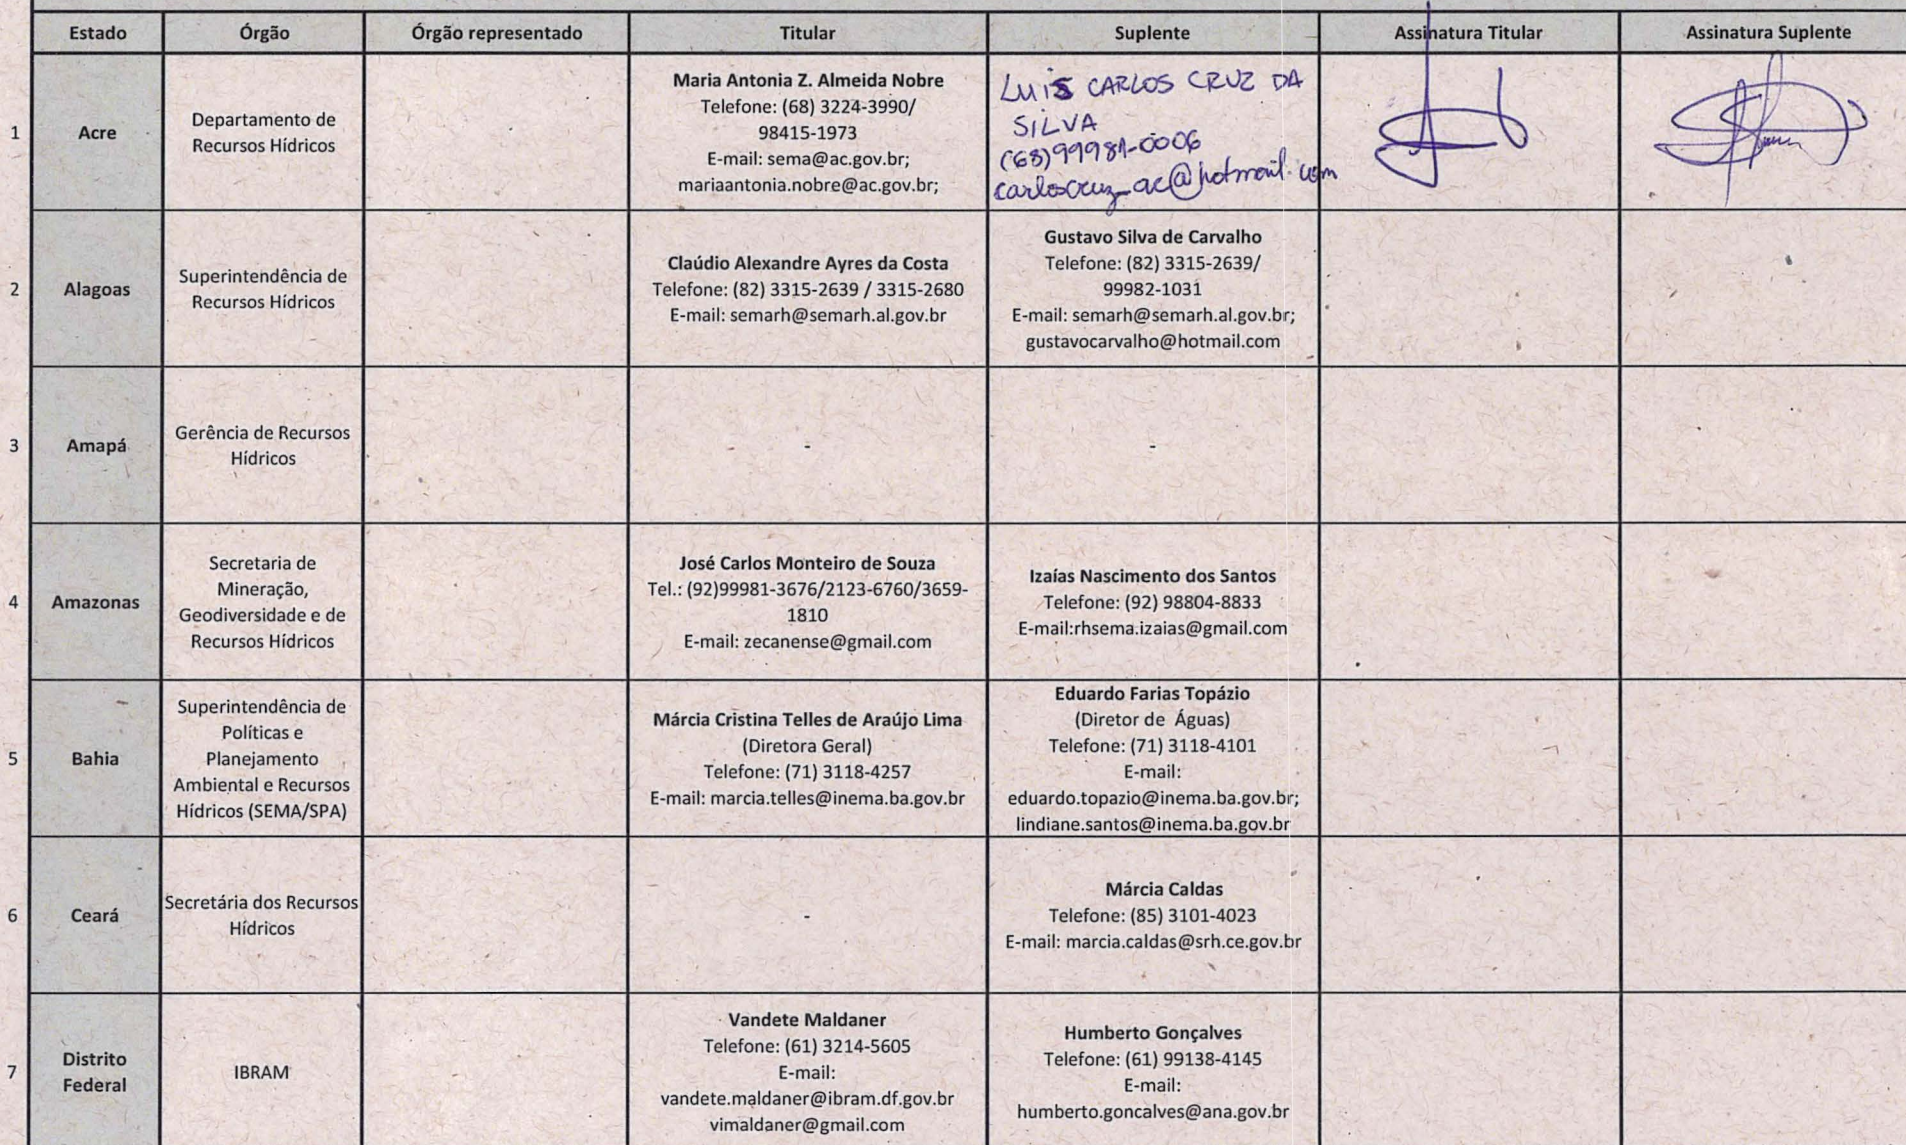 Estado Órgão Órgão representado Titular Suplente Assinatura Titular Assinatura Suplente
1
Acre
Departamento de
Recursos Hídricos
Maria Antonia Z. Almeida Nobre
Telefone: (68) 3224-3990/
98415-1973
E-mail: sema@ac.gov.br;
mariaantonia.nobre@ac.gov.br;
LUIS CARLOS CRUZ DA
SILVA
(68)99981-0006
carloscruz_ac@hotmail.com
2
Alagoas
Superintendência de
Recursos Hídricos
Claúdio Alexandre Ayres da Costa
Telefone: (82) 3315-2639 / 3315-2680
E-mail: semarh@semarh.al.gov.br
Gustavo Silva de Carvalho
Telefone: (82) 3315-2639/
99982-1031
E-mail: semarh@semarh.al.gov.br;
gustavocarvalho@hotmail.com
3
Amapá
Gerência de Recursos
Hídricos
-
-
4
Amazonas
Secretaria de
Mineração,
Geodiversidade e de
Recursos Hídricos
José Carlos Monteiro de Souza
Tel.: (92)99981-3676/2123-6760/3659-
1810
E-mail: zecanense@gmail.com
Izaías Nascimento dos Santos
Telefone: (92) 98804-8833
E-mail:rhsema.izaias@gmail.com
5
Bahia
Superintendência de
Políticas e
Planejamento
Ambiental e Recursos
Hídricos (SEMA/SPA)
Márcia Cristina Telles de Araújo Lima
(Diretora Geral)
Telefone: (71) 3118-4257
E-mail: marcia.telles@inema.ba.gov.br
Eduardo Farias Topázio
(Diretor de Águas)
Telefone: (71) 3118-4101
E-mail:
eduardo.topazio@inema.ba.gov.br;
lindiane.santos@inema.ba.gov.br
6
Ceará
Secretária dos Recursos
Hídricos
-
Márcia Caldas
Telefone: (85) 3101-4023
E-mail: marcia.caldas@srh.ce.gov.br
7
Distrito
Federal
IBRAM
Vandete Maldaner
Telefone: (61) 3214-5605
E-mail:
vandete.maldaner@ibram.df.gov.br
vimaldaner@gmail.com
Humberto Gonçalves
Telefone: (61) 99138-4145
E-mail:
humberto.goncalves@ana.gov.br